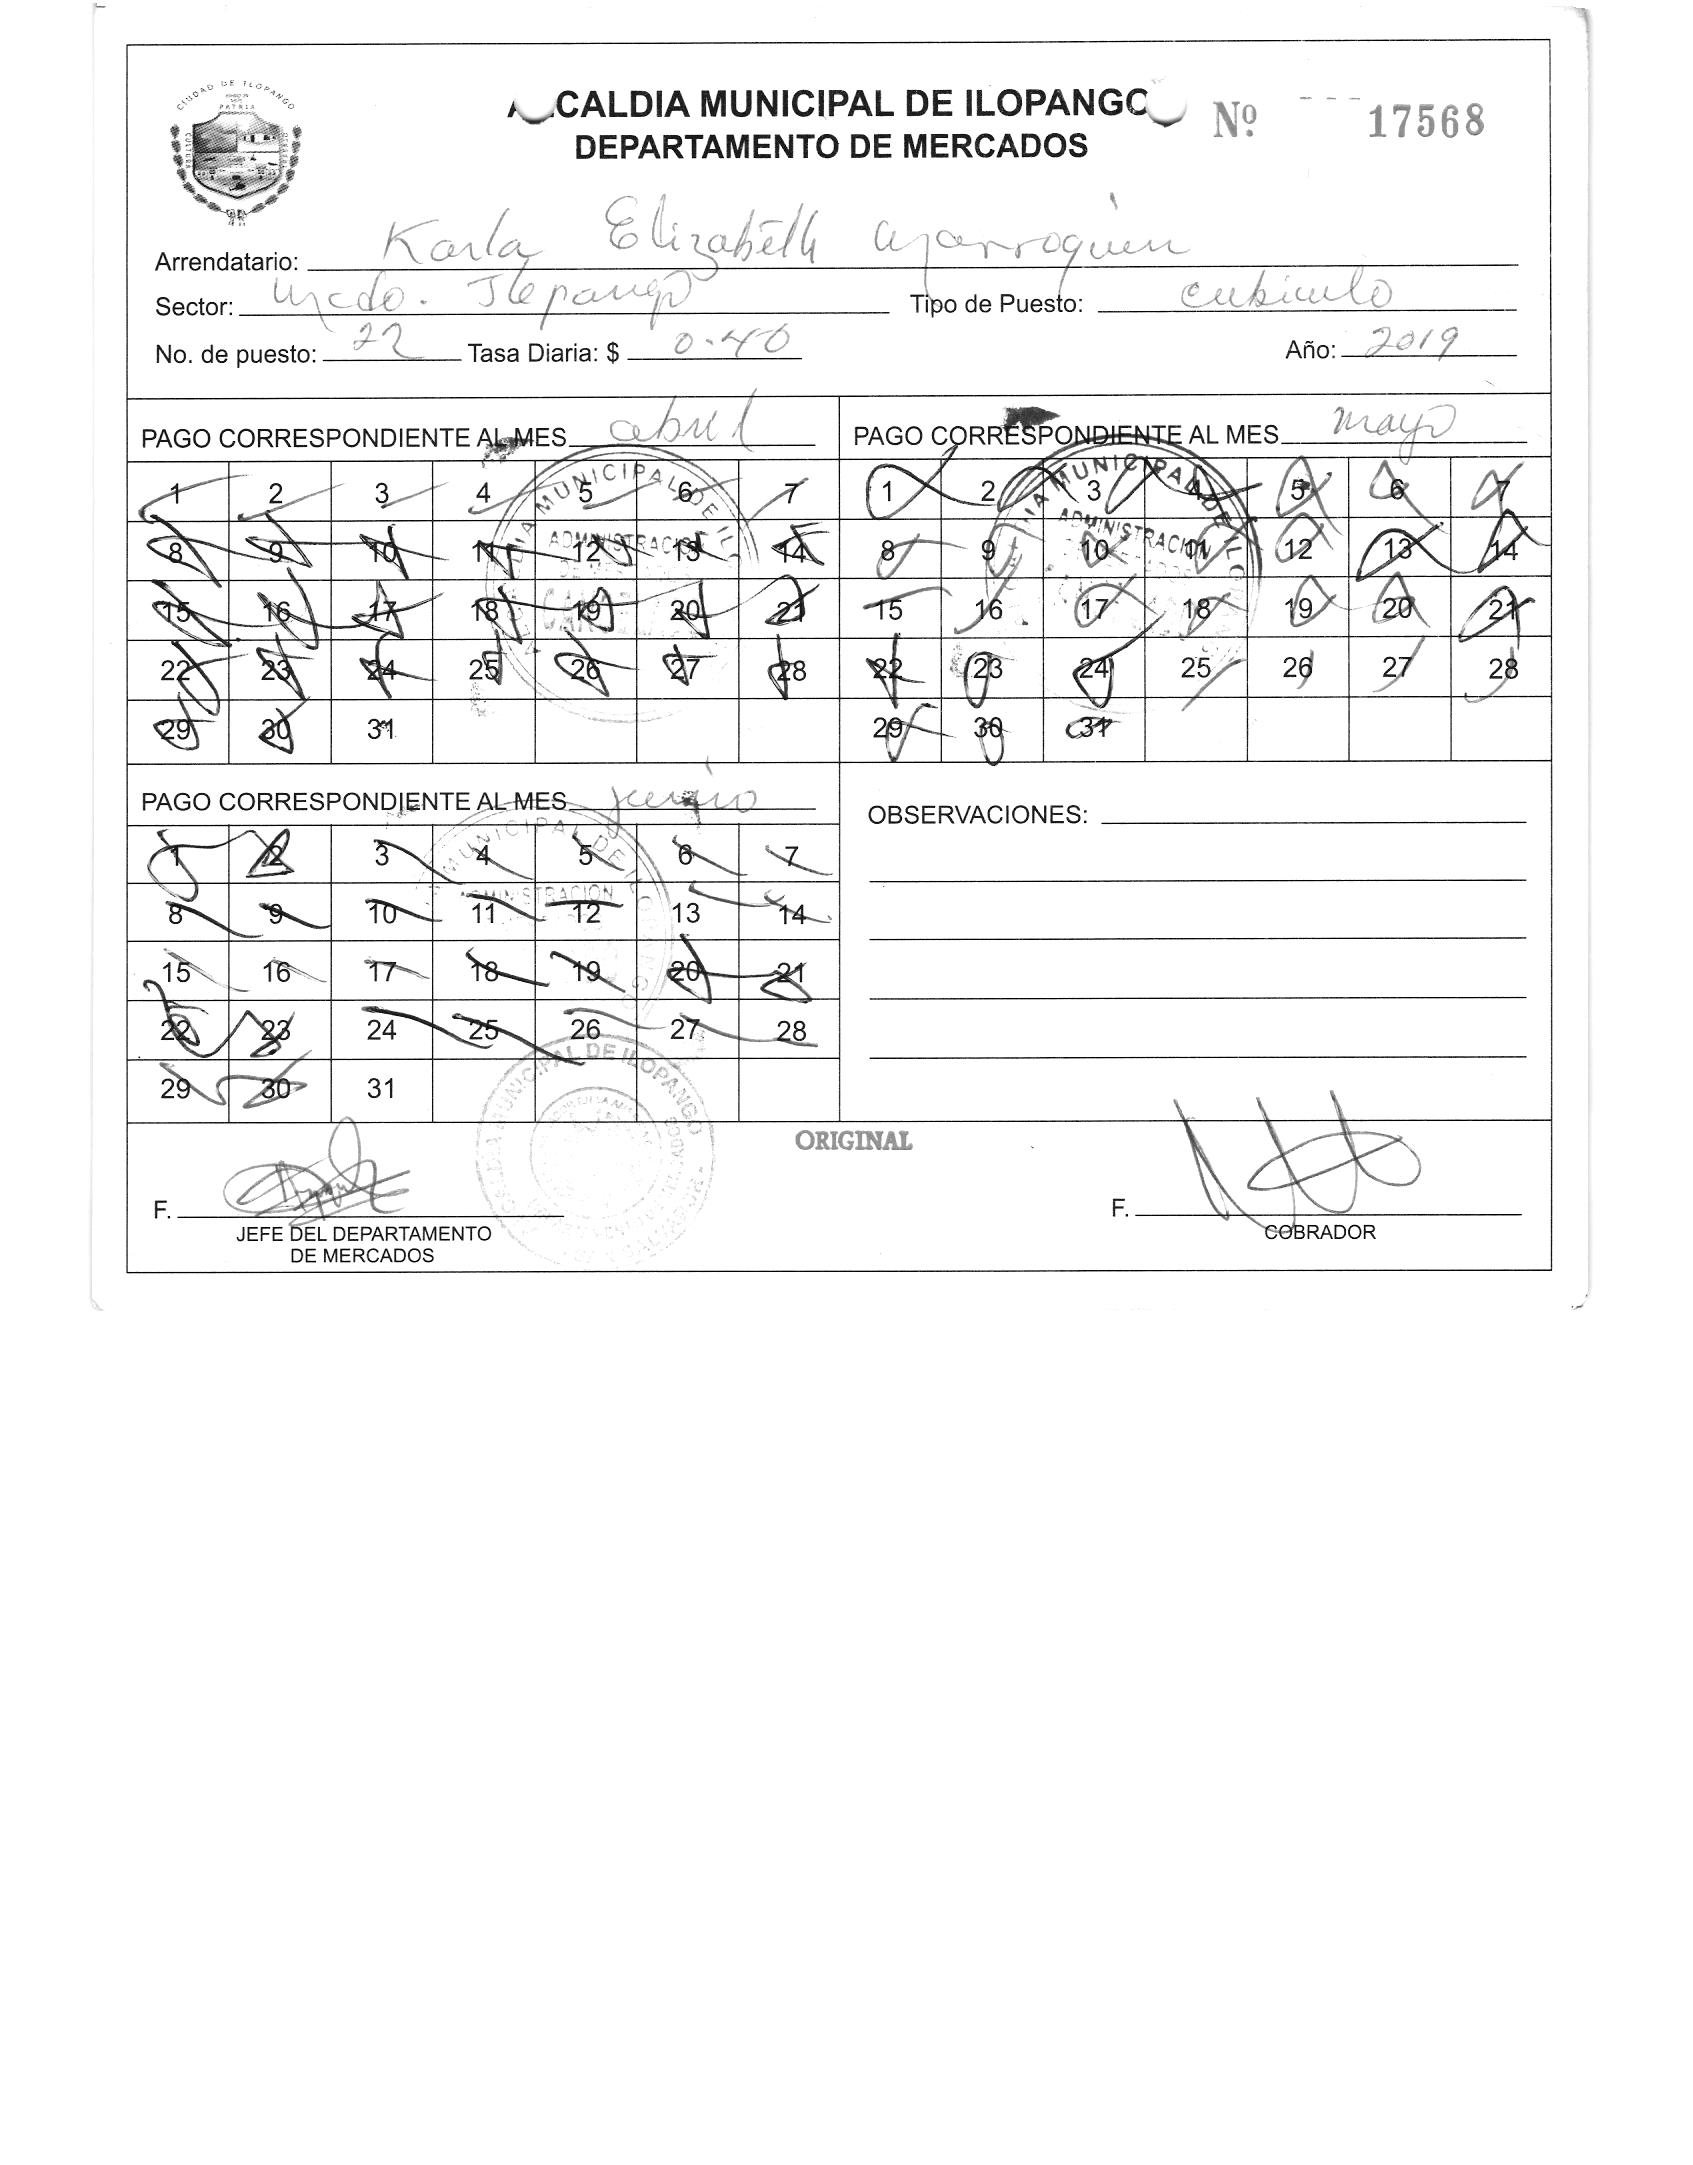 CIUDAD DE ILOPANGO
PATRIA
CULTURA
ALCALDIA MUNICIPAL DE ILOPANGO
Nº 17568
DEPARTAMENTO DE MERCADOS
Arrendatario: Karla Elizabeth Marroquin
Sector: Mcdo. Ilopango Tipo de Puesto: cubiculo
No. de puesto: 22 Tasa Diaria: $ 0.40 Año: 2019
PAGO CORRESPONDIENTE AL MES abril
1 2 3 4 5 6 7
8 9 10 11 12 13 14
15 16 17 18 19 20 21
22 23 24 25 26 27 28
29 30 31
MUNICIPAL DE ILO
ADMINISTRACION
PAGO CORRESPONDIENTE AL MES mayo
1 2 3 4 5 6 7
8 9 10 11 12 13 14
15 16 17 18 19 20 21
22 23 24 25 26 27 28
29 30 31
MUNICIPAL DE ILO
ADMINISTRACION
PAGO CORRESPONDIENTE AL MES junio
1 2 3 4 5 6 7
8 9 10 11 12 13 14
15 16 17 18 19 20 21
22 23 24 25 26 27 28
29 30 31
MUNICIPAL DE ILOPANGO
ADMINISTRACION
OBSERVACIONES:
MUNICIPAL DE ILOPANGO
ORIGINAL
F.
JEFE DEL DEPARTAMENTO
DE MERCADOS
F.
COBRADOR